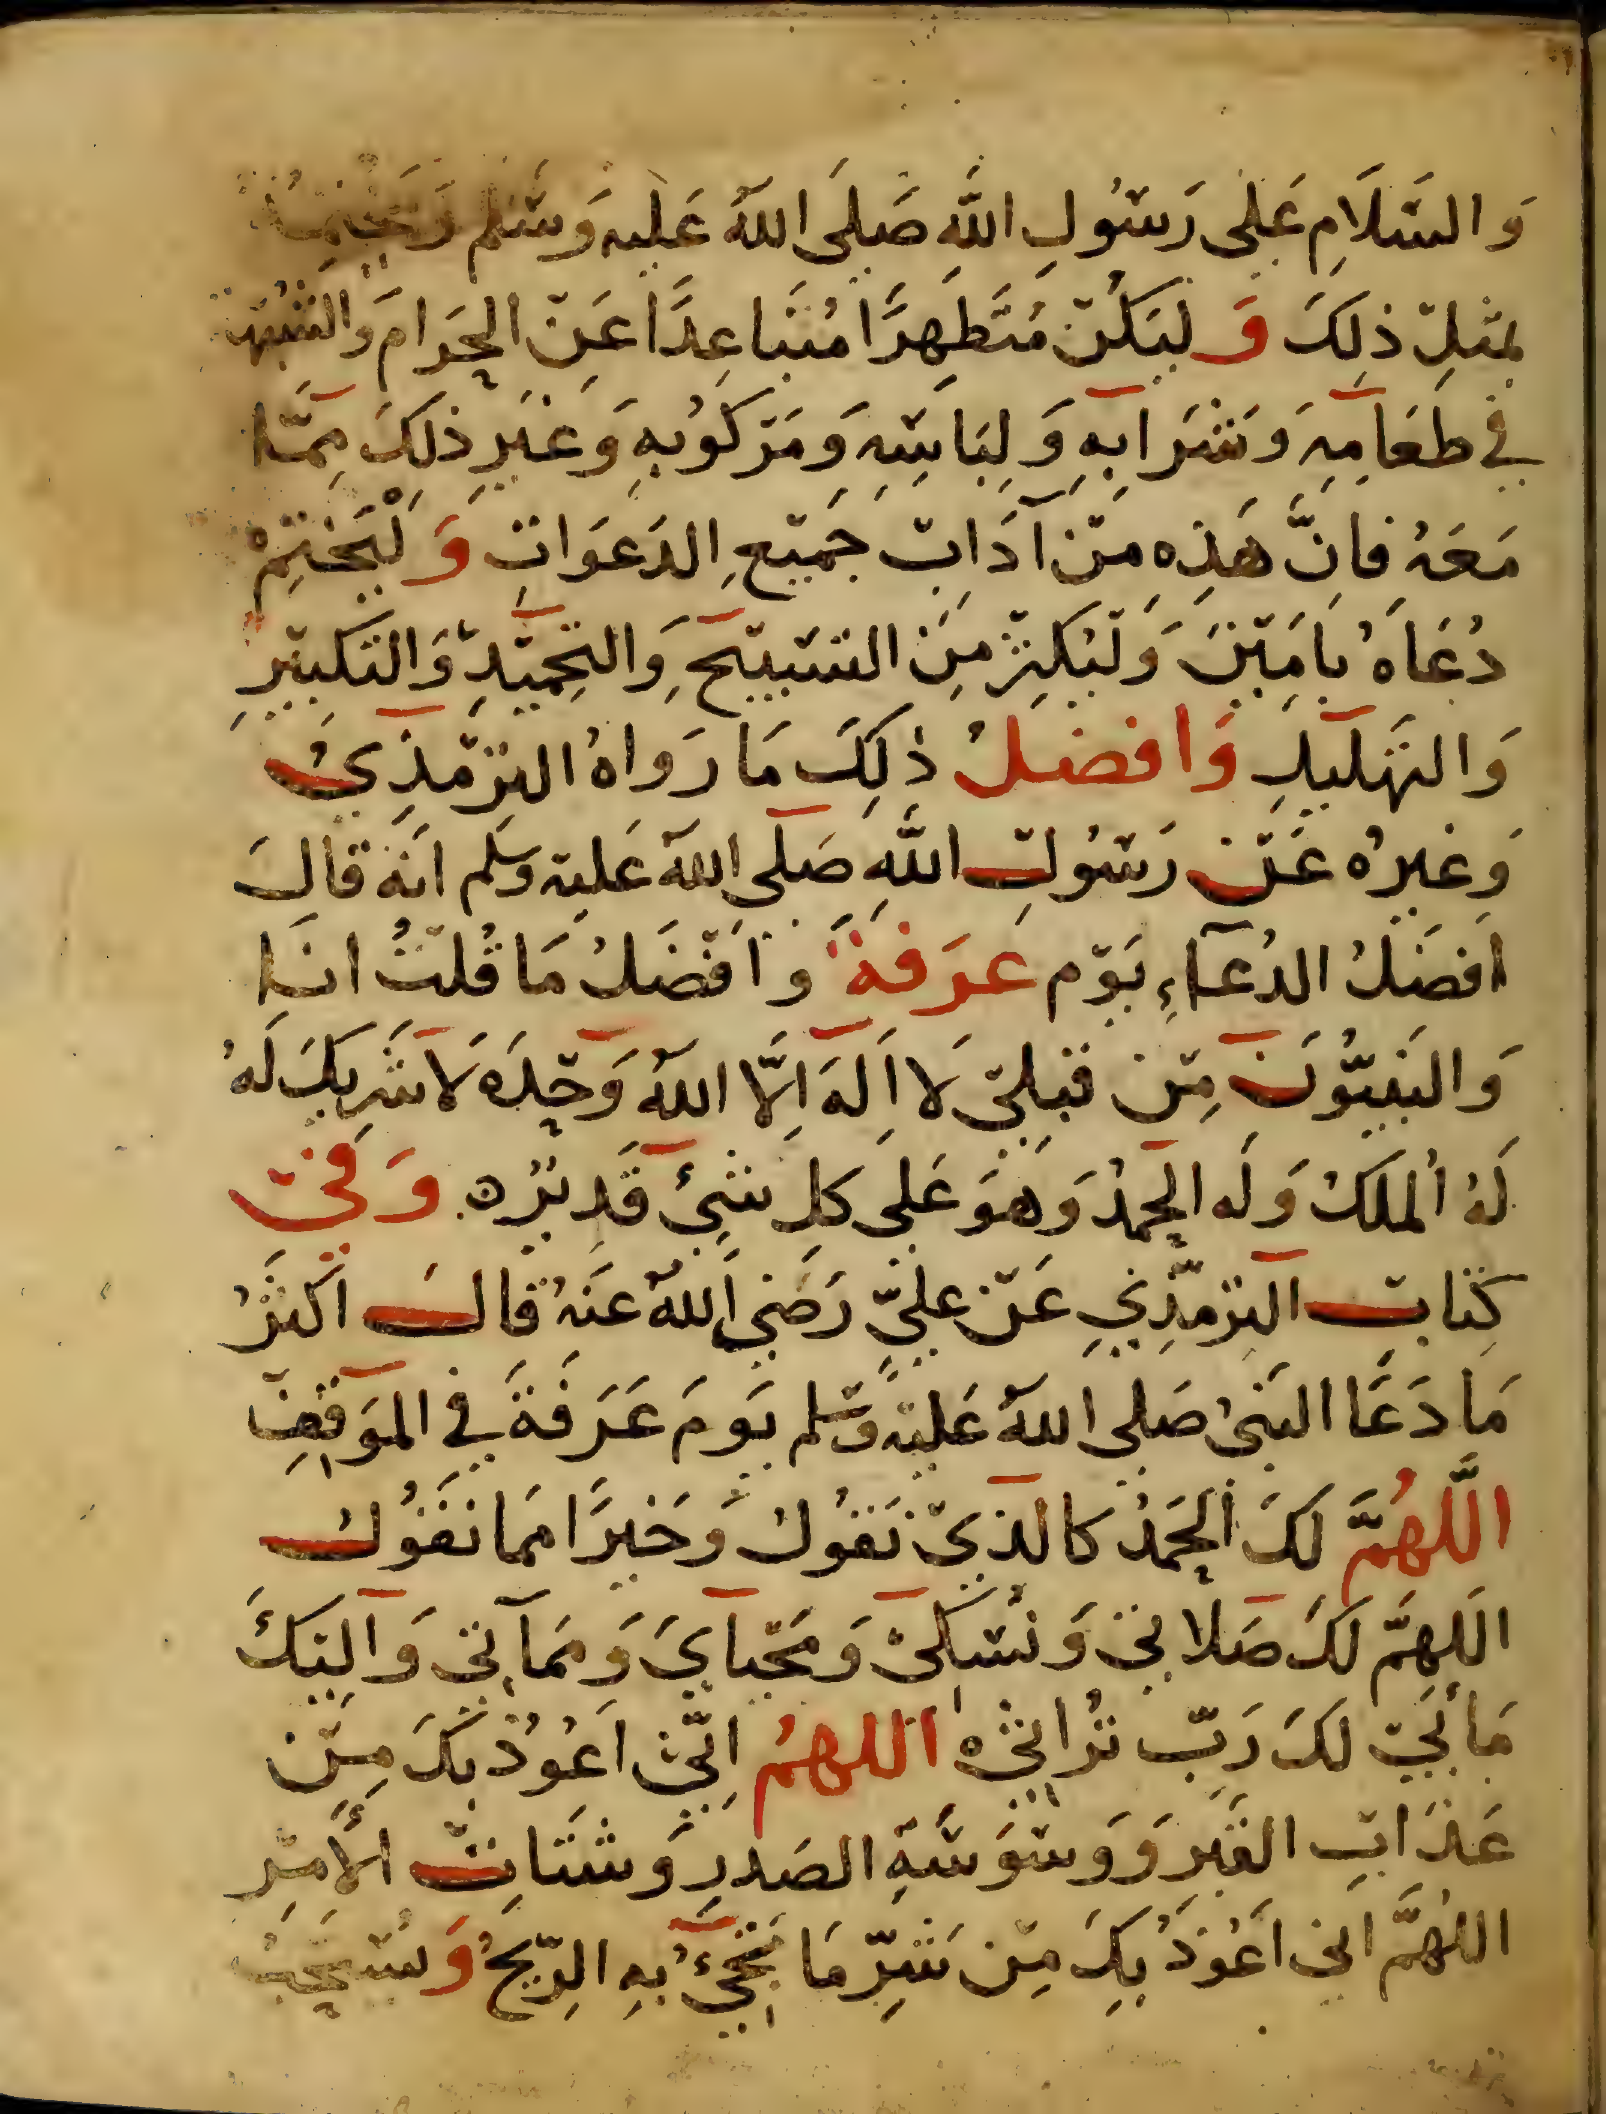 وَالسَّلَامِ عَلَى رَسُولِ اللَّهِ صَلَى اللَّهُ عَلَيهِ وَسَلم وَيَختِمُهُ
بمثلِ ذلِكَ وَليَكُنْ مُتَطَهِرًا مُتَبَاعِدًا عَنِ الحَرَامِ وَالشُبهَة
في طَعَامِهِ وَشَرَابِهِ وَلِبَاسِهِ وَمَرْكوُبهِ وَغَيرِ ذلِكَ مِمَّا
مَعَهُ فَانَّ هَذِهِ مِنْ آدَابِ جَمِيْعِ الدَعوَاتِ وَلْيَختِمْ
دُعَاهُ بآمِيْنَ وَلْيُكثِرْ مِنَ التَسْبِيْحِ وَالتَحِمْيْدِ وَالتَكبِيْرِ
وَالتَهَليلِ وَافضلُ ذلِكَ مَا رَواهُ التِرْمذِيُ
وَغيرُه عَنْ رَسُولِ اللَّهِ صَلَى اللَّه عَليهْ وسَلم انَهُ قالَ
افضَلُ الدُعَاءِ يَوْم عَرَفة وَافْضَلُ مَا قُلتُ انَا
وَالنَبيُّونَ مِنْ قبلِيْ لَا اِلَهَ اِلَّا اللَّهُ وَحْدَه لَا شَرِيكَ لَهُ
لَهُ المُلكُ وَلَه الحَمدُ وَهوَ عَلَى كلِ شَيْءٍ قَدِيْرُه وَفِيْ
كِتَابِ التِرْمِّذِيِ عَنْ عَليٍّ رَضيَ اللَّهُ عَنهُ قالَ اكثَرُ
مَا دَعَا النَبيُ صَلى اللَّهُ عَليهْ وَسْلم يَومَ عَرَفَةَ في المَوَقِفِ
اللَّهُمَّ لَكَ الحَمدُ كالذيْ نَقوُلُ وَخَيرًا مما نَقوُلُ
اللهمَّ لَكَ صَلاتِي وَنُسُكيْ وَمَحْيَايَ وَمَمآتي وَاليَكَ
مَأبيْ لَكَ رَبِّ تُرَاثيْ ه اللهمُ اِنّيْ اعُوذُ بكَ مِنْ
عَذَابِ القَبرِ وَوَسْوَسَةِ الصَدرِ وَشتَاتِ الأَمْرِ
اللهُمَّ اني اَعُوذُ بِكَ مِنْ شَرِّ مَا تَجيْءُ بِهِ الرِّيحُ وَيُسْتَحَبُ